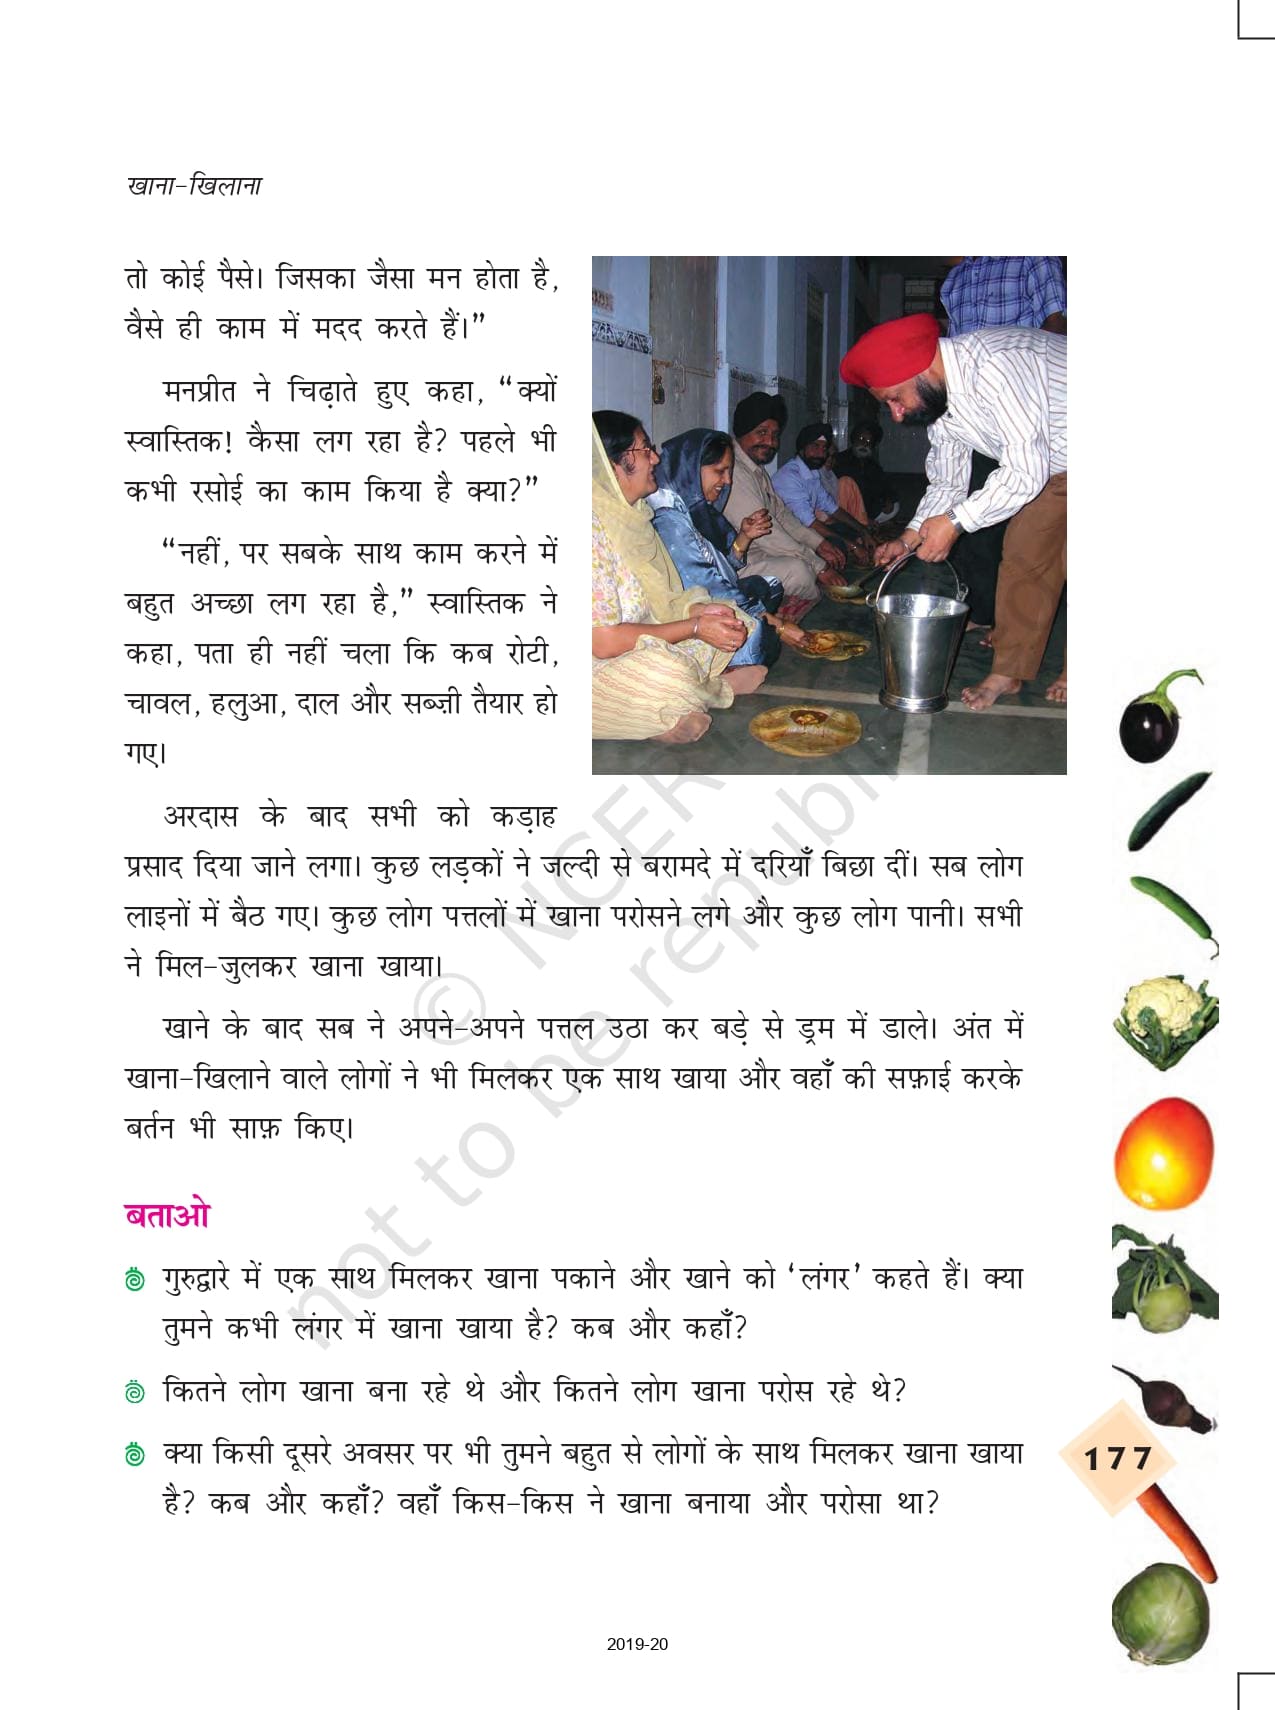 खाना-खिलाना
तो कोई पैसे। जिसका जैसा मन होता है,
वैसे ही काम में मदद करते हैं।”
मनप्रीत ने चिढ़ाते हुए कहा, “क्यों
स्वास्तिक! कैसा लग रहा है? पहले भी
कभी रसोई का काम किया है क्या?”
“नहीं, पर सबके साथ काम करने में
बहुत अच्छा लग रहा है,” स्वास्तिक ने
कहा, पता ही नहीं चला कि कब रोटी,
चावल, हलुआ, दाल और सब्ज़ी तैयार हो
गए।
अरदास के बाद सभी को कड़ाह
प्रसाद दिया जाने लगा। कुछ लड़कों ने जल्दी से बरामदे में दरियाँ बिछा दीं। सब लोग
लाइनों में बैठ गए। कुछ लोग पत्तलों में खाना परोसने लगे और कुछ लोग पानी। सभी
ने मिल-जुलकर खाना खाया।
खाने के बाद सब ने अपने-अपने पत्तल उठा कर बड़े से ड्रम में डाले। अंत में
खाना-खिलाने वाले लोगों ने भी मिलकर एक साथ खाया और वहाँ की सफ़ाई करके
बर्तन भी साफ़ किए।
बताओ
गुरुद्वारे में एक साथ मिलकर खाना पकाने और खाने को ‘लंगर’ कहते हैं। क्या
तुमने कभी लंगर में खाना खाया है? कब और कहाँ?
कितने लोग खाना बना रहे थे और कितने लोग खाना परोस रहे थे?
क्या किसी दूसरे अवसर पर भी तुमने बहुत से लोगों के साथ मिलकर खाना खाया
है? कब और कहाँ? वहाँ किस-किस ने खाना बनाया और परोसा था?
177
2019-20
© NCER
not to be republi